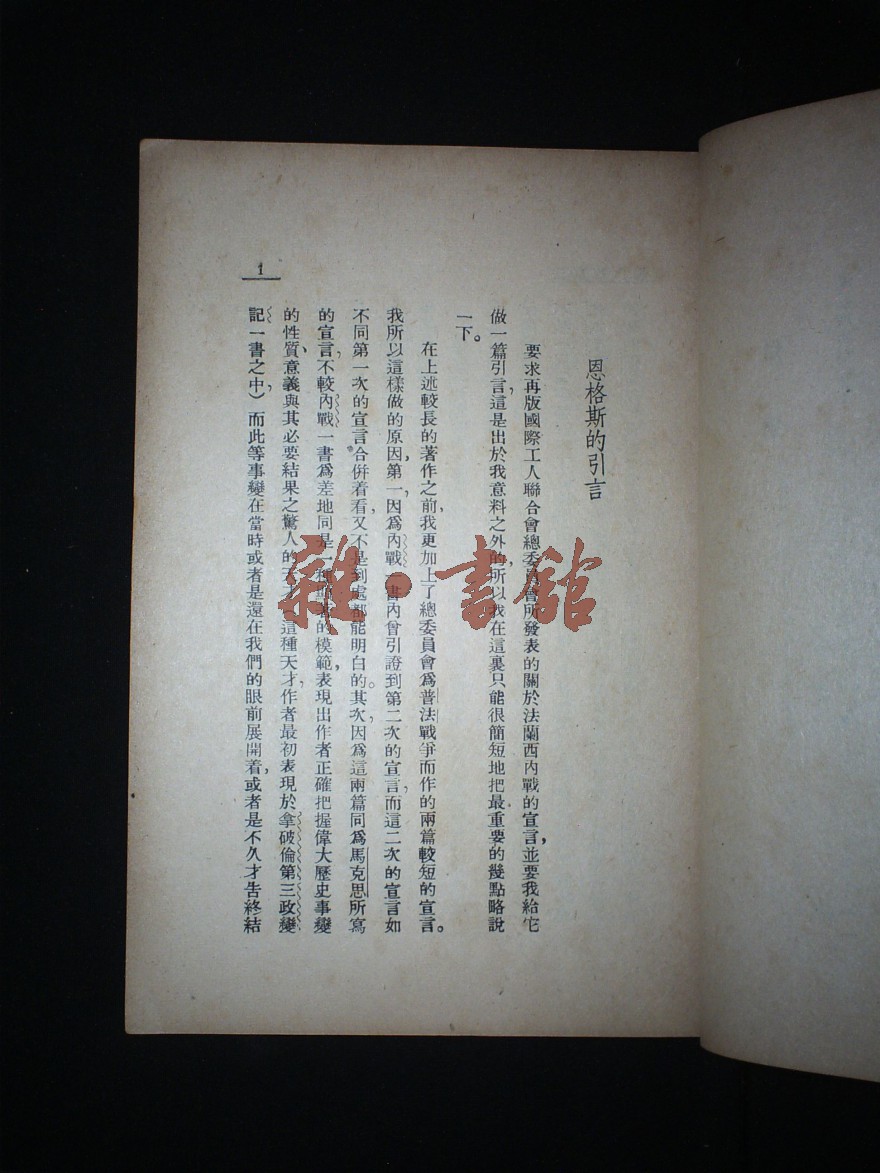 恩格斯的引言
要求再版國際工人聯合會總委員會所發表的關於法蘭西內戰的宣言，並要我給它
做一篇引言，這是出於我意料之外的，所以我在這裏只能很簡短地把最重要的幾點略說
一下。
在上述較長的著作之前，我更加上了總委員會爲普法戰爭而作的兩篇較短的宣言。
我所以這樣做的原因，第一，因爲內戰一書內曾引證到第二次的宣言，而這二次的宣言如
不同第一次的宣言合併着看，又不是到處都能明白的。其次，因爲這兩篇同爲馬克思所寫
的宣言，不較內戰一書爲差地同是一種的模範，表現出作者正確把握偉大歷史事變
的性質、意義與其必要結果之驚人的天才（這種天才，作者最初表現於拿破倫第三政變
記一書之中）而此等事變在當時或者是還在我們的眼前展開着，或者是不久才告終結
1
雜·書館